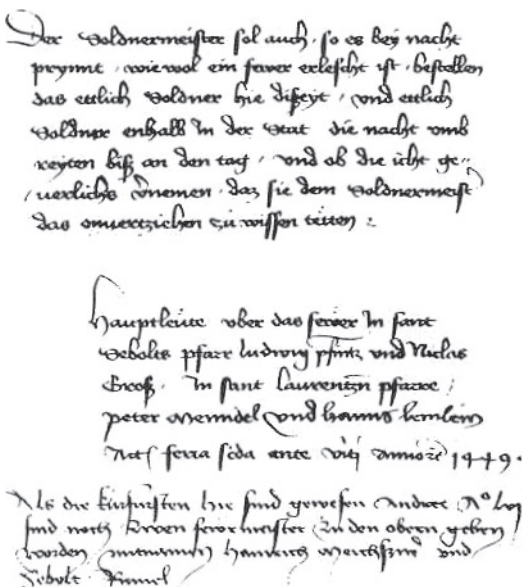 Der Soldnermeister sol auch · so es bey nacht
prynnt · wie wol ein fewer erlescht ist · bestellen
das ettlich Soldner hie disseyt · vnd ettlich
Soldner enhalb In der Stat die nacht vmb
reyten biß an den tag · vnd ob die icht ge-
uerlichs v̄nemen · daz sie dem Soldnermeist
das onuertziehen zu wissen tetten :
Hauptlewte vber das fewer In sant
Sebolts pfarr ludwig pfintz vnd Niclas
Groß · In sant laurentzn pfarre /
peter Menndel vnd hanns
Act feria scda ante viti anno 1449 ·
Als die kurfursten hie sind gewesen Andree Aº lvj
sind noch zwen fewrmeister zu den obern geben
worden mitnamen Heinrich vnd
Sebolt